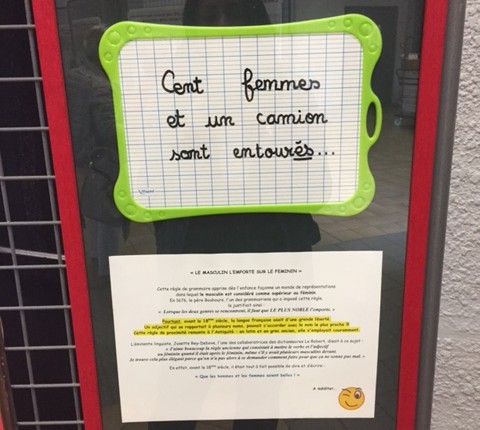 Cent femmes
et un camion
sont entourés...
« LE MASCULIN L'EMPORTE SUR LE FEMININ »
Cette règle de grammaire apprise dès l'enfance façonne un monde de représentations
dans lequel le masculin est considéré comme supérieur au féminin.
En 1676, le père Bouhours, l'un des grammairiens qui a imposé cette règle,
la justifiait ainsi :
« Lorsque les deux genres se rencontrent, il faut que LE PLUS NOBLE l'emporte. »
Pourtant, avant le 18ème siècle, la langue française usait d'une grande liberté.
Un adjectif qui se rapportait à plusieurs noms, pouvait s'accorder avec le nom le plus proche !!
Cette règle de proximité remonte à l'Antiquité : en latin et en grec ancien, elle s'employait couramment.
L'éminente linguiste, Josette Rey-Debove, l'une des collaboratrices des dictionnaires Le Robert, disait à ce sujet :
« J'aime beaucoup la règle ancienne qui consistait à mettre le verbe et l'adjectif
au féminin quand il était après le féminin, même s'il y avait plusieurs masculins devant.
Je trouve cela plus élégant parce qu'on n'a pas alors à se demander comment faire pour que ça ne sonne pas mal. »
En effet, avant le 18ème siècle, il était tout à fait possible de dire et d'écrire :
« Que les hommes et les femmes soient belles ! »
A méditer...